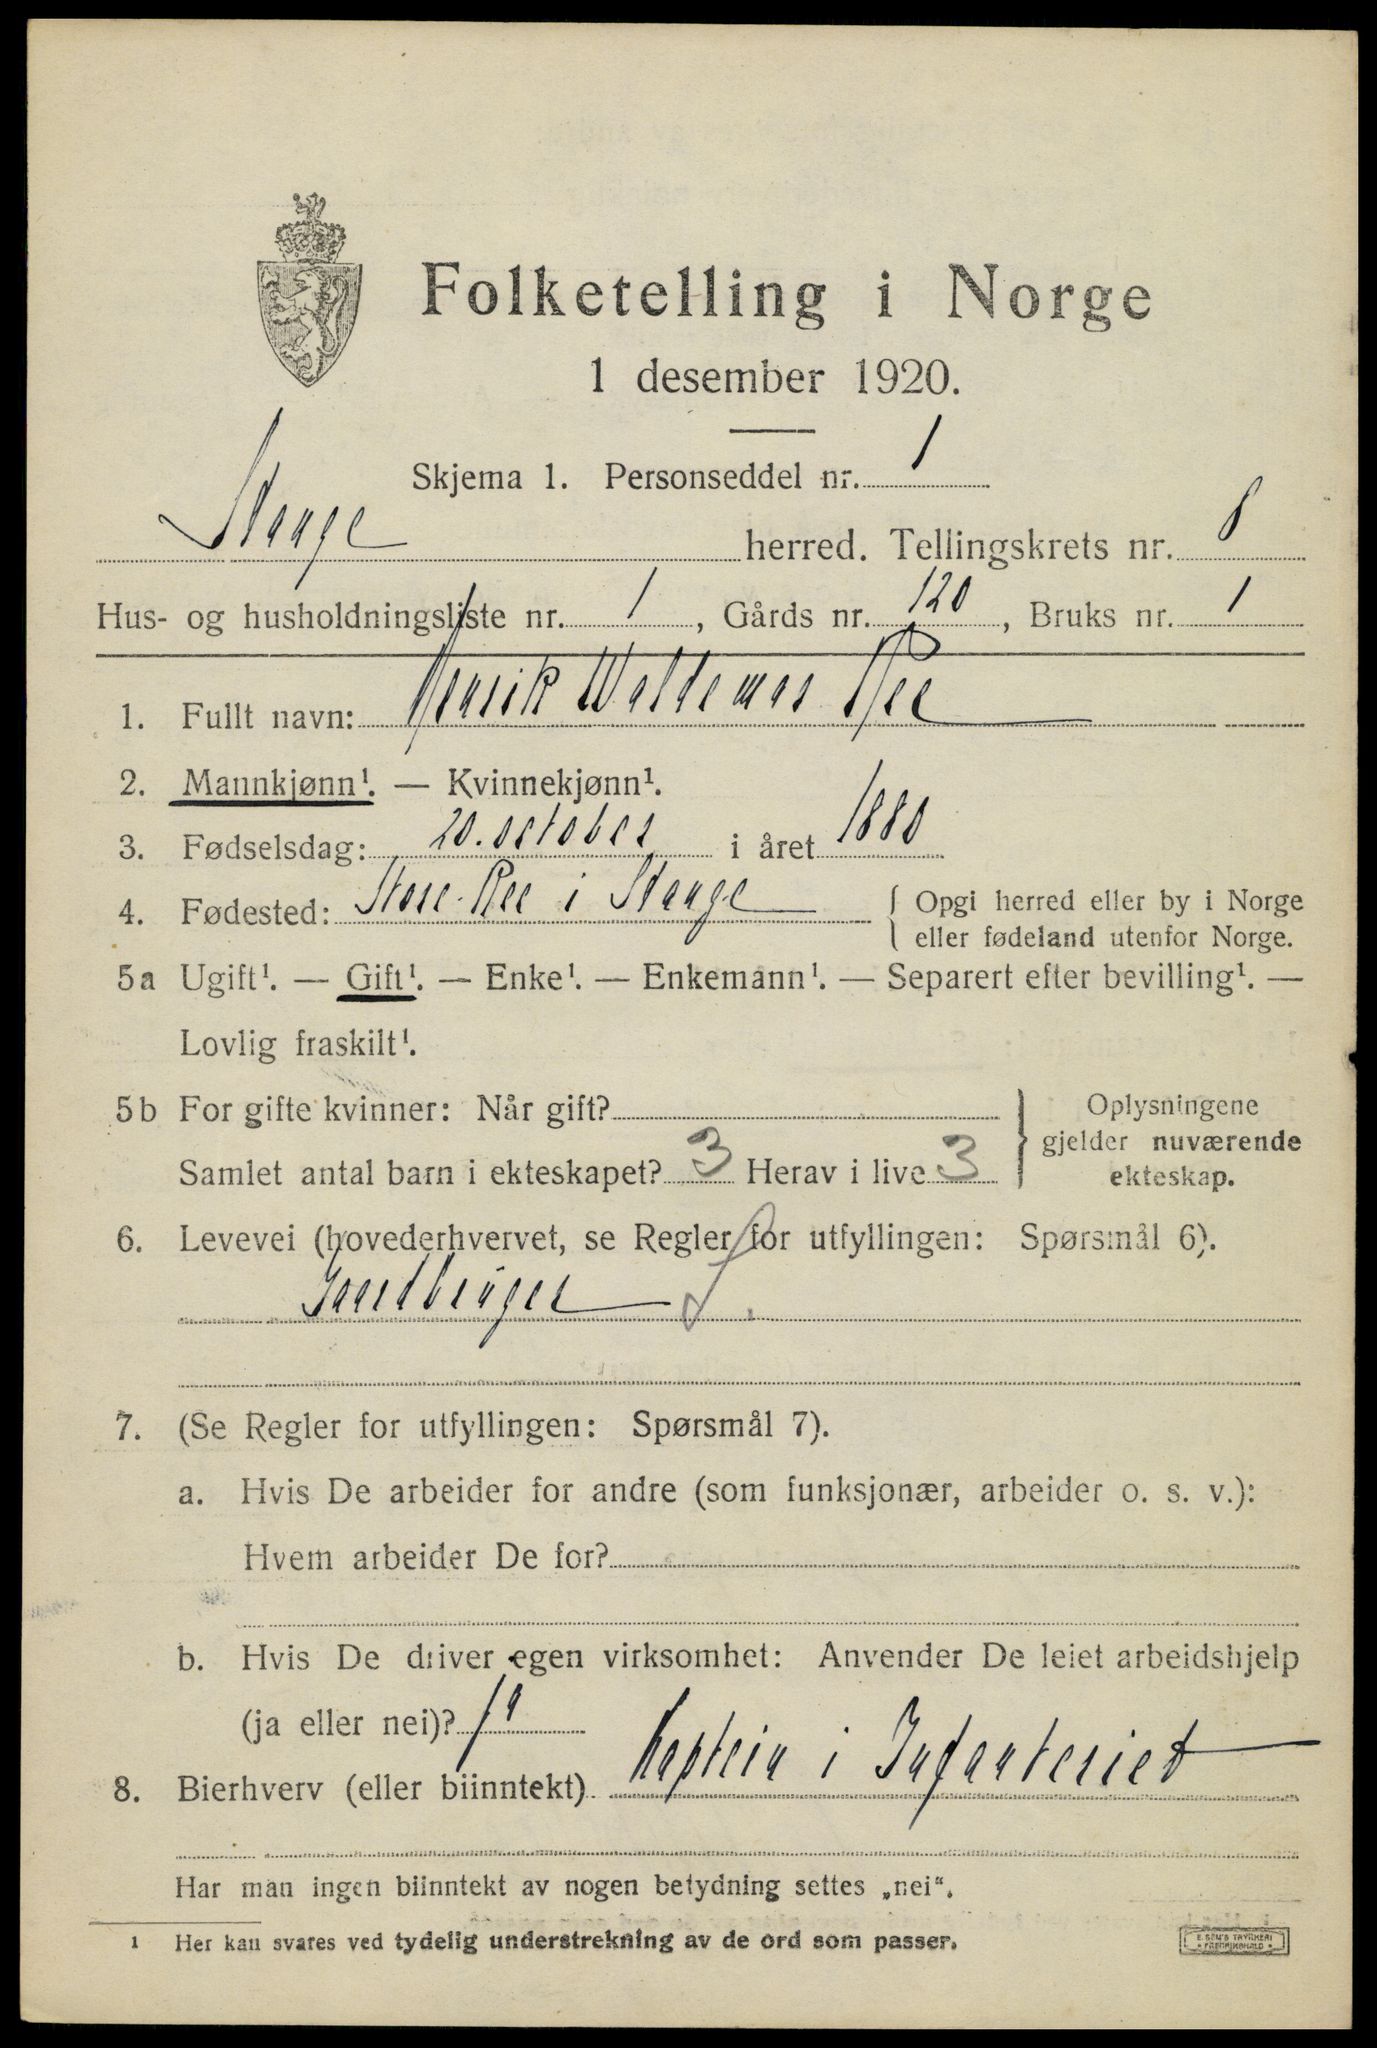 Folketelling i Norge
1 desember 1920.
Skjema 1. Personseddel nr. 1
Stange herred. Tellingskrets nr. 8
Hus- og husholdningsliste nr. 1, Gårds nr. 120, Bruks nr. 1
1. Fullt navn: Henrik Waldemar Ree
2. Mannkjønn¹. — Kvinnekjønn¹.
3. Fødselsdag: 20. october i året 1880
4. Fødested: Store Ree i Stange { Opgi herred eller by i Norge
eller fødeland utenfor Norge.
5a Ugift¹. — Gift¹. — Enke¹. — Enkemann¹. — Separert efter bevilling¹. —
Lovlig fraskilt¹.
5b For gifte kvinner: Når gift? } Oplysningene
gjelder nuværende
Samlet antal barn i ekteskapet? 3 Herav i live 3 ekteskap.
6. Levevei (hovederhvervet, se Regler for utfyllingen: Spørsmål 6).
Gaardbruger
7. (Se Regler for utfyllingen: Spørsmål 7).
a. Hvis De arbeider for andre (som funksjonær, arbeider o. s. v.):
Hvem arbeider De for?
b. Hvis De driver egen virksomhet: Anvender De leiet arbeidshjelp
(ja eller nei)? ja
8. Bierhverv (eller biinntekt) Kaptein i Infanteriet
Har man ingen biinntekt av nogen betydning settes „nei“.
1 Her kan svares ved tydelig understrekning av de ord som passer.
E. SEM'S TRYKKERI
FREDRIKSHALD